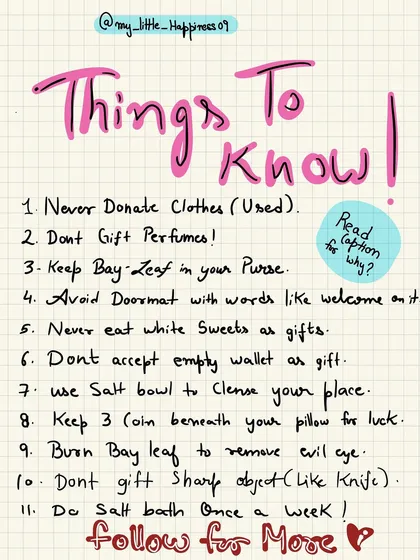 @my_little_Happiness09
Things To
Know!
Read
Caption
for why?
1. Never Donate Clothes (Used).
2. Dont Gift Perfumes!
3. Keep Bay-Leaf in your Purse.
4. Avoid Doormat with words like welcome on it
5. Never eat white Sweets as gifts.
6. Dont accept empty wallet as gift.
7. use Salt bowl to Clense your place.
8. Keep 3 Coin beneath your pillow for luck.
9. Burn Bay leaf to remove evil eye.
10. Dont gift Sharp object (Like Knife).
11. Do Salt bath Once a Week!
follow for More